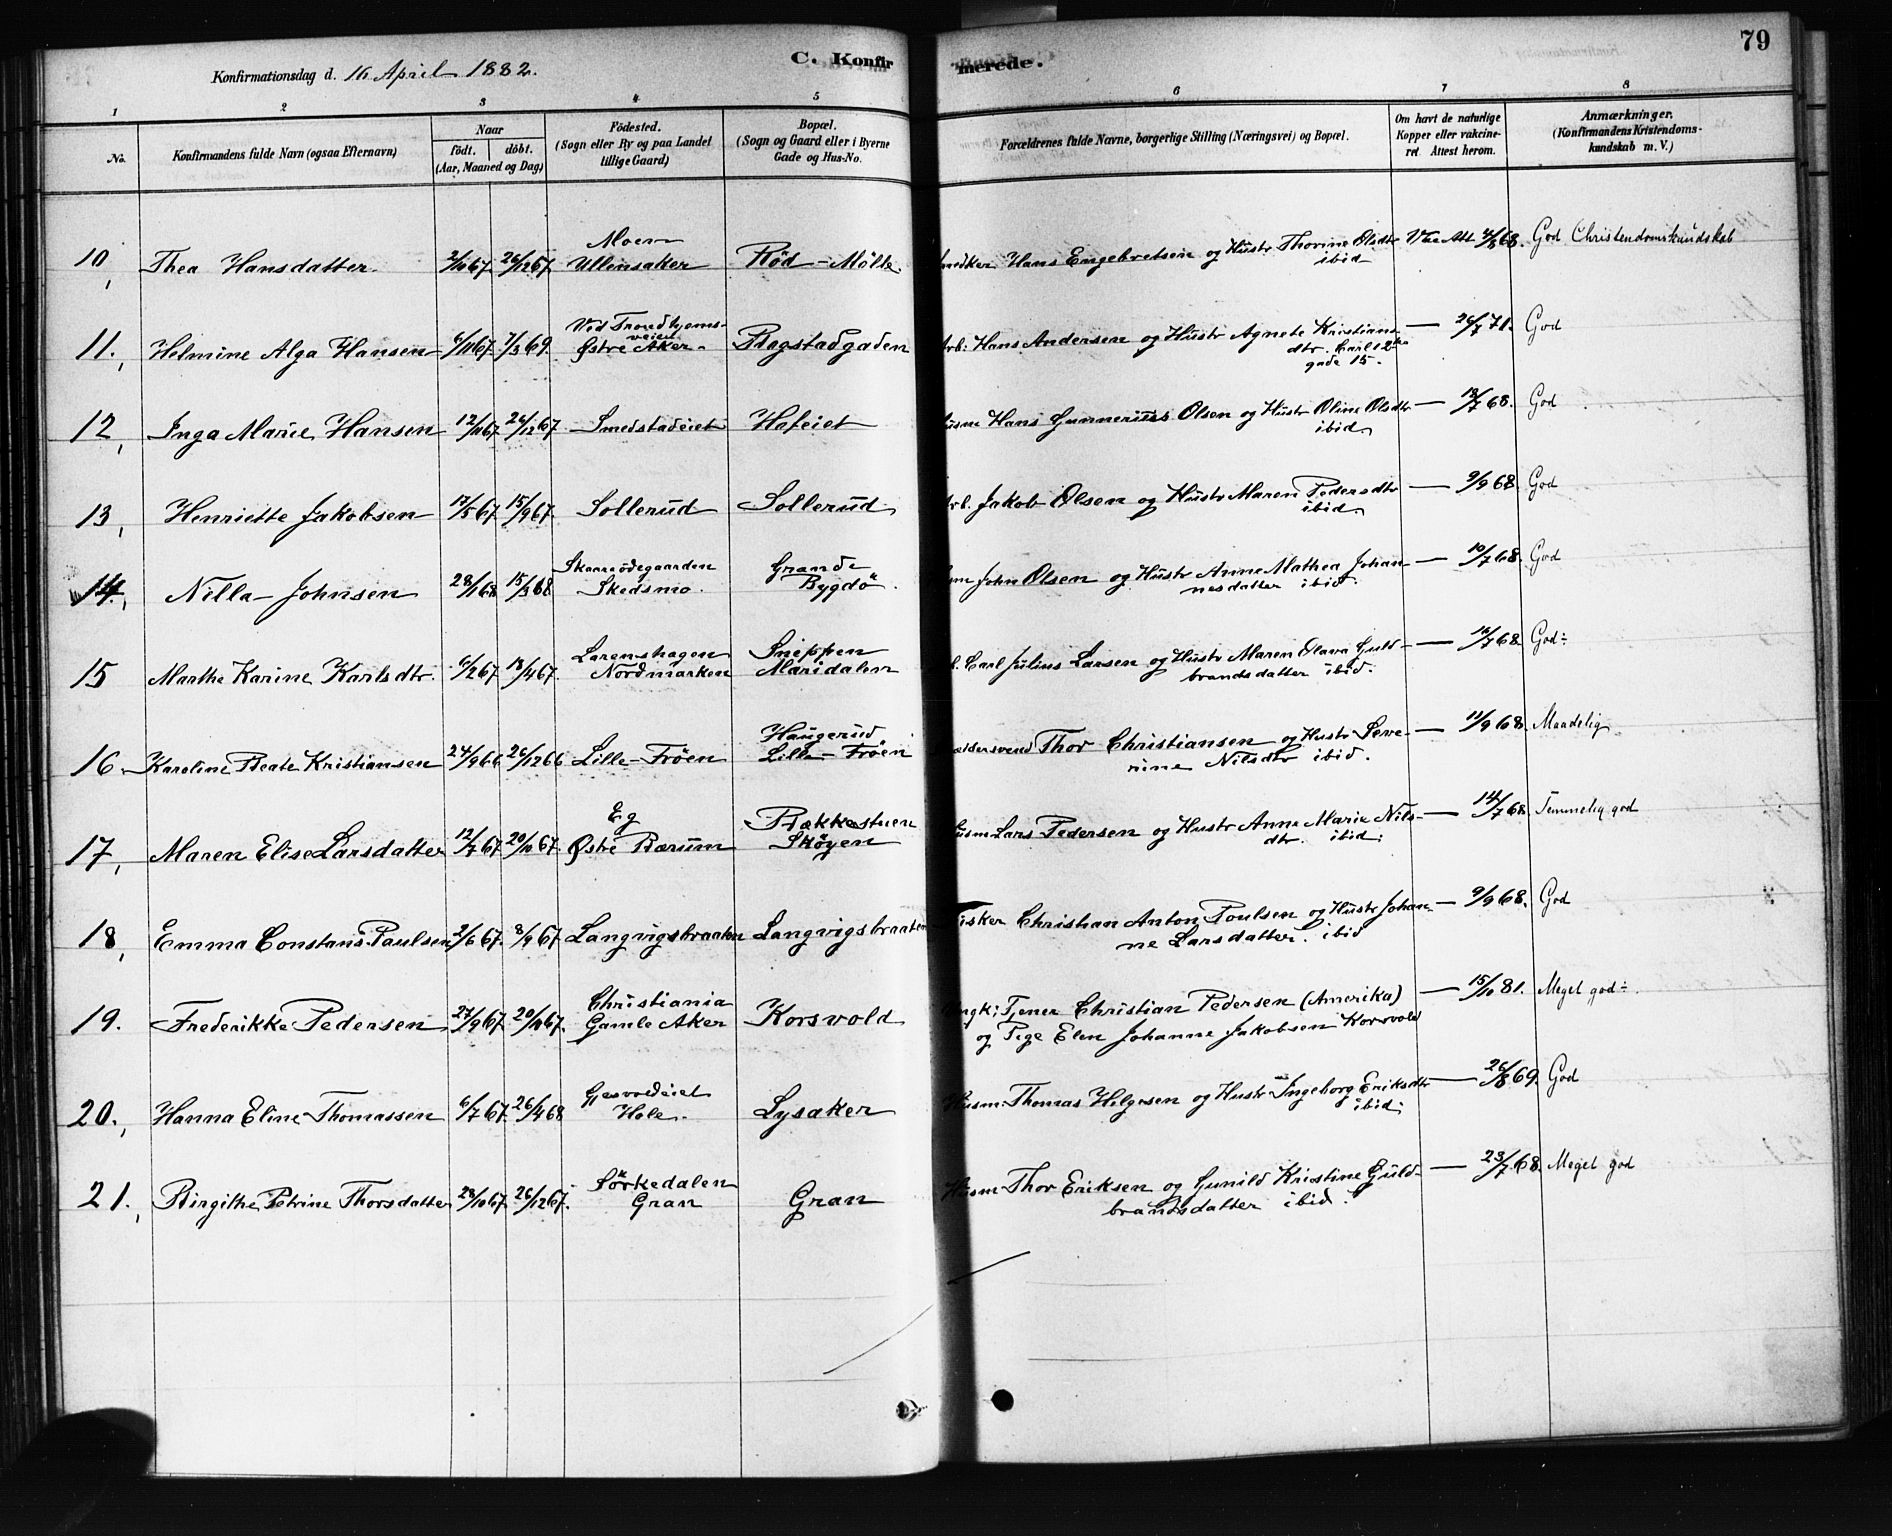 79
C. Konfirmerede.
Konfirmationsdag d. 16 April 1882.
1 2 3 4 5 6 7 8
No.
Konfirmandens fulde Navn (ogsaa Efternavn)
Naar
födt. döbt.
(Aar, Maaned og Dag)
Födested.
(Sogn eller By og paa Landet
tillige Gaard)
Bopæl.
(Sogn og Gaard eller i Byerne
Gade og Hus-No.
Forældrenes fulde Navne, borgerlige Stilling (Næringsvei) og Bopæl.
Om havt de naturlige
Kopper eller vakcine-
ret. Attest herom.
Anmærkninger.
(Konfirmandens Kristendoms-
kundskab m. V.)
Moen
10, Thea Hansdatter 2/10 67 26/12 67 Ullensaker Röd - Hans Engebretsen og Hustr Thorine Olsdtr Vac Att 68. God Christendomskundskab
ibid
Ved Trondhjems-
veien
11., Helmine Alga Hansen 6/11 67 7/3 69. Østre Aker Bogstadgaden Arb: Hans Andersen og Hustr Agnete Kristians- — 26/7 71. God
dtr. Carl 12tes
gade 15.
12, Inga Marie Hansen 12/11 67 26/12 67 Smedstadeiet Hofeiet Husm Hans Gunnerius Olsen og Hustr Oline Olsdtr — 18/7 68. God
ibid.
13, Henriette Jakobsen 17/5 67 15/9 67. Sollerud Sollerud Arb. Jakob Olsen og Hustr Maren Pedersdtr — 9/9 68. God
ibid.
Skaareödegaarden Grande
14., Nilla Johnsen 28/1 68 15/3 68 Skedsmo. Bygdö. John Olsen og Hustr Anne Mathea Johan- — 10/7 68. God
nesdatter ibid.
Larenshagen Snippen
15 Marthe Karine Karlsdtr. 6/2 67 18/4 67. Nordmarken Maridalen Carl Julius Larsen og Hustr Maren Olava Guld- — 16/7 68. God÷
brandsdatter ibid.
Haugerud
16. Karoline Beate Kristiansen 24/9 66 26/12 66 Lille-Fröen Lille-Fröen Thor Christiansen og Hustr Seve- — 11/9 68. Maadelig
rine Nilsdtr ibid.
Eg Bækkestuen
17., Maren Elise Larsdatter 12/7 67 20/10 67. Østre Bærum Sköyen Husm Lars Pedersen og Hustr Anne Marie Nils- — 14/7 68. Temmelig god
dtr. ibid.
18, Emma Constans Paulsen 2/6 67. 8/9 67 Langvigsbraaten Langvigsbraaten Fisker Christian Anton Poulsen og Hustr Johan- — 9/9 68. God
ne Larsdatter. ibid
Christiania
19. Frederikke Pedersen 27/9 67 20/10 67. Gamle Aker Korsvold Ungk; Tjener Christian Pedersen (Amerika) — 15/10 81. Meget god÷
og Pige Elen Johanne Jakobsen Korsvold
Gjesvoldeiet
20., Hanna Eline Thomassen 6/7 67. 26/4 68 Hole. Lysaker Husm. Thomas Helgesen og Hustr Ingeborg Eriksdtr — 26/8 69. God
ibid:
Sörkedalen
21., Birgithe Petrine Thorsdatter 28/10 67 26/12 67. Gran Gran Husm Thor Eriksen og Gunild Kristine Guld- — 23/7 68. Meget god
brandsdatter ibid.